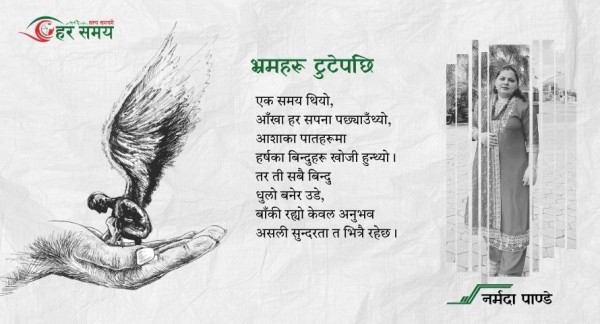 हर समय
भ्रमहरू टुटेपछि
एक समय थियो,
आँखा हर सपना पछ्याउँथ्यो,
आशाका पातहरूमा
हर्षका बिन्दुहरू खोजी हुन्थ्यो ।
तर ती सबै बिन्दु
धुलो बनेर उडे,
बाँकी रह्यो केवल अनुभव
असली सुन्दरता त भित्रै रहेछ ।
नर्मदा पाण्डे